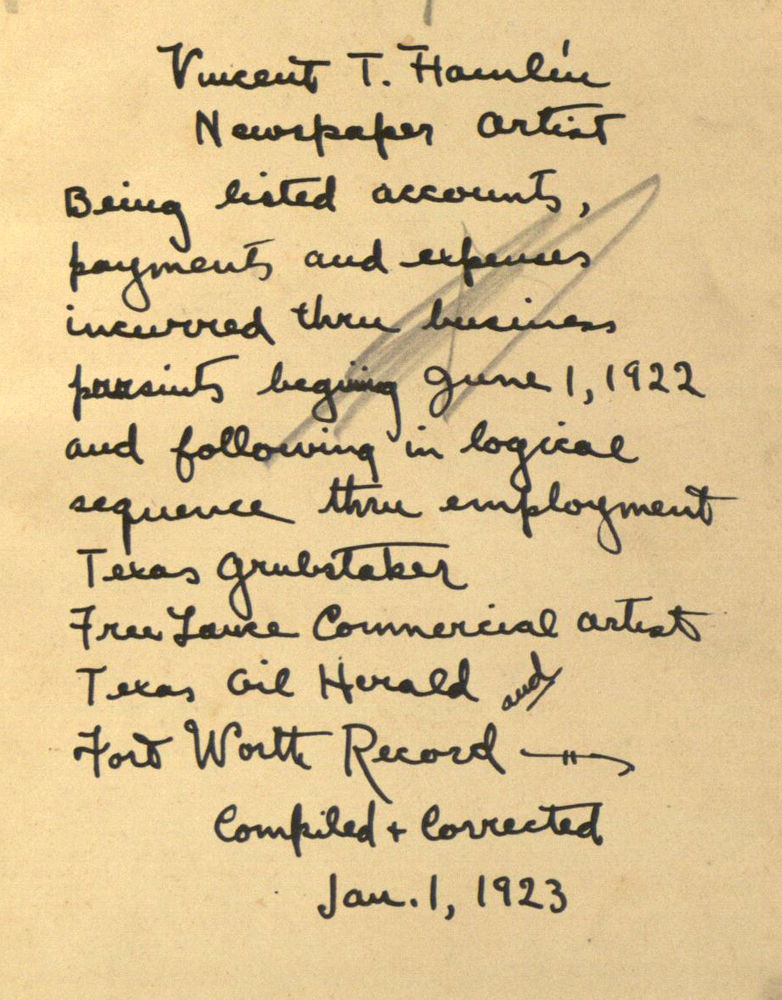 Vincent T. Hamlin
Newspaper Artist
Being listed accounts,
payments and expenses
incurred thru business
pursuits begining June 1, 1922
and following in logical
sequence thru employment
Texas Grubstaker
Free Lance Commercial Artist
Texas Oil Herald and
Fort Worth Record
Compiled + Corrected
Jan. 1, 1923